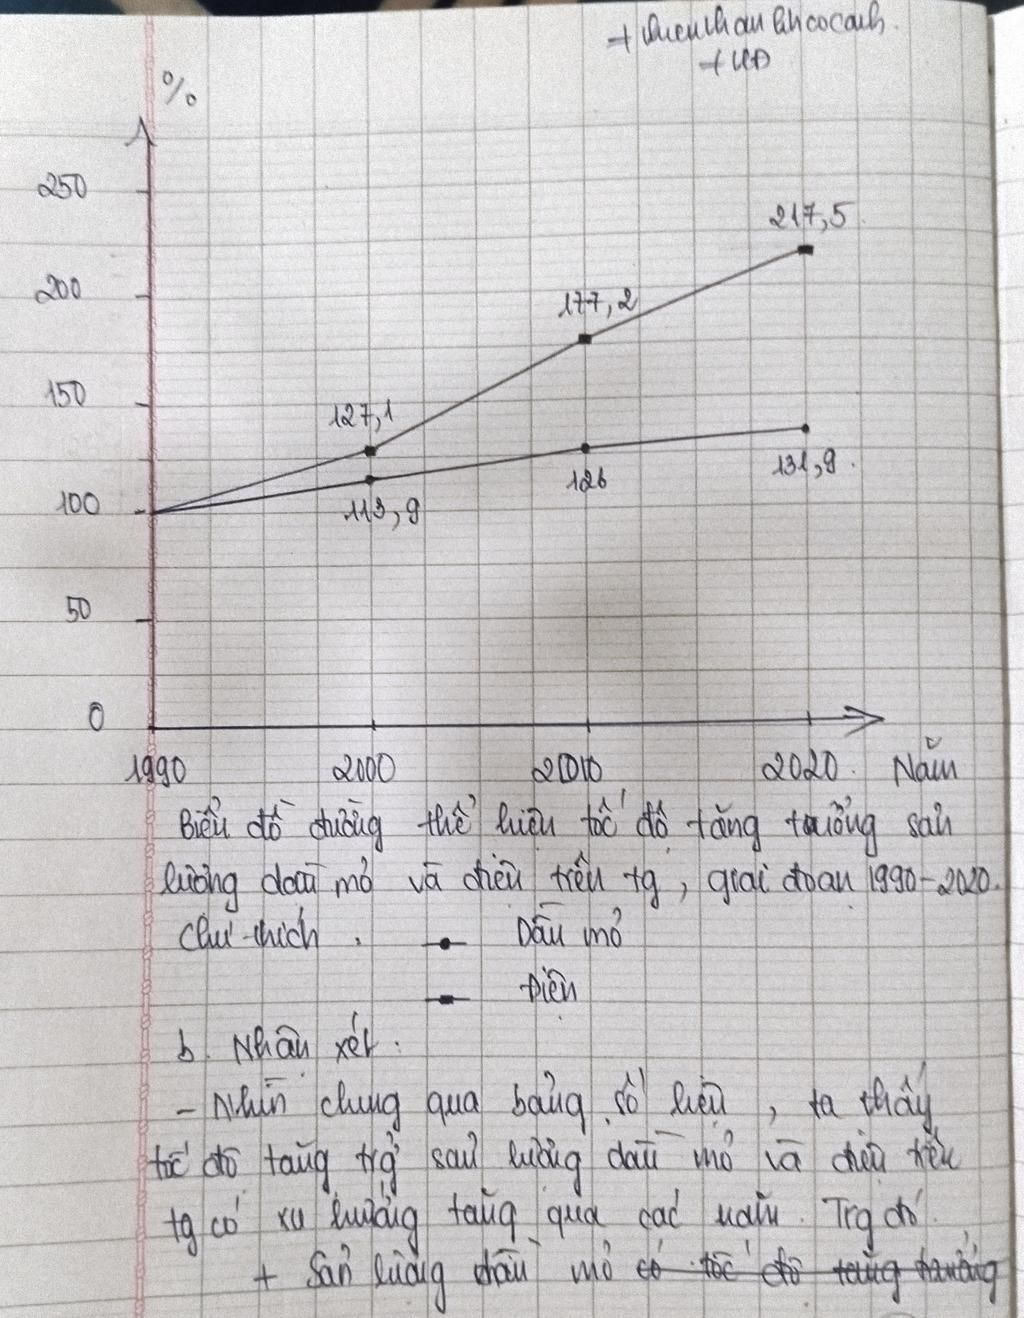 %
250
217,5
200
177,2
150
127,1
100
113,9
126
131,9
50
0
1990 2000 2010 2020 Năm
Biểu đồ đường thể hiện tốc độ tăng trưởng sản
lượng dầu mỏ và điện trên tg, giai đoạn 1990-2020.
Chú thích: Dầu mỏ
Điện
b. Nhận xét:
- Nhìn chung qua bảng số liệu, ta thấy
tốc độ tăng trg sản lượng dầu mỏ và điện trên
tg có xu hướng tăng qua các năm. Trg đó
+ Sản lượng dầu mỏ có tốc độ tăng trưởng